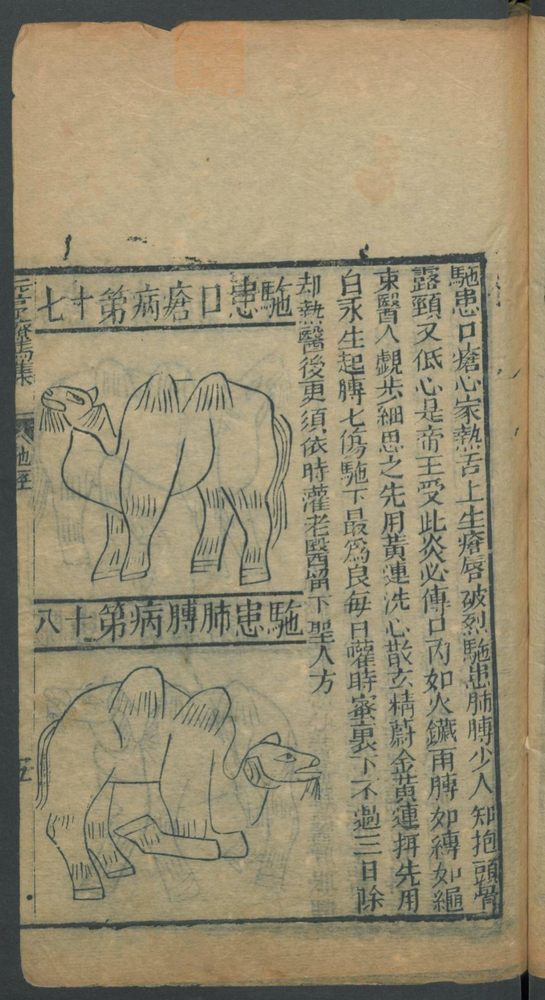 駞患口瘡心家熱舌上生瘡唇破烈駞患肺膊少人知抱頭骨
露頸又低心是帝王受此炎必傳口內如火鑯兩膊如縳如繩
束醫人覷步細思之先用黃連洗心散玄精蔚金黃連拼先用
白永生起膊七傷駞下最爲良每日嚾時蜜裏下不過三日除
却熱醫後更須依時灌老醫留下聖人方
駞患口瘡病第十七
駞患肺膊病第十八
馬集
五